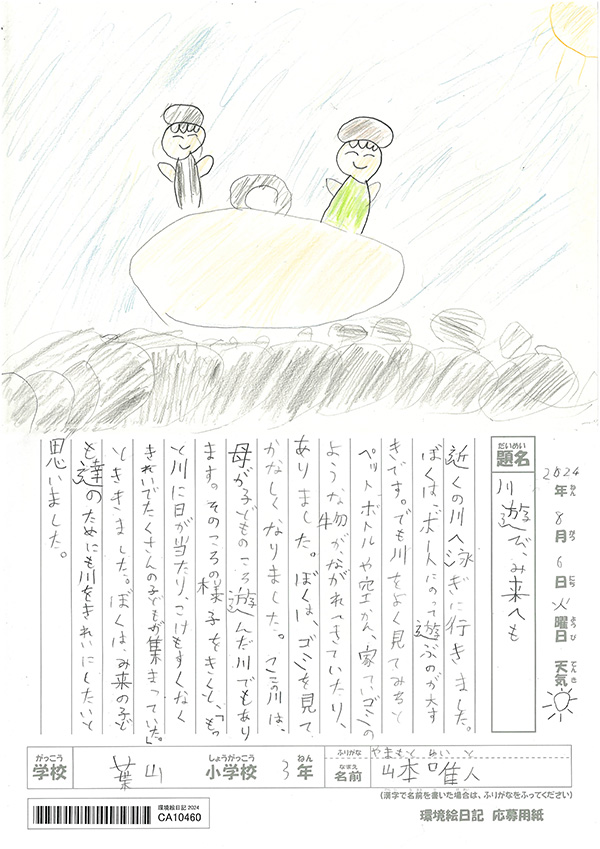 2024年ねん8月がつ6日にち火曜日ようび 天気てんき
だいめい
題名
川遊びで、み来へも
近くの川へ泳ぎに行きました。
ぼくは、ボートにのって遊ぶのが大す
きです。でも川をよく見てみると
ペットボトルや空かん、家ていゴミの
ような物が、ながれてきていたり、
ありました。ぼくは、ゴミを見て
かなしくなりました。この川は、
母が子どものころ遊んだ川でもあり
ます。そのころの様子をきくと、「もっ
と川に日が当たり、こけもすくなく
きれいでたくさんの子どもが集まっていた。」
とききました。ぼくは、み来の子ど
も達のためにも川をきれいにしたいと
思いました。
がっこう
学校
葉山
しょうがっこう
小学校
3年
ねん
ふりがな
やまもと ゆいと
なまえ
名前
山本唯人
(漢字で名前を書いた場合は、ふりがなをふってください)
環境絵日記 2024
CA10460
環境絵日記 応募用紙